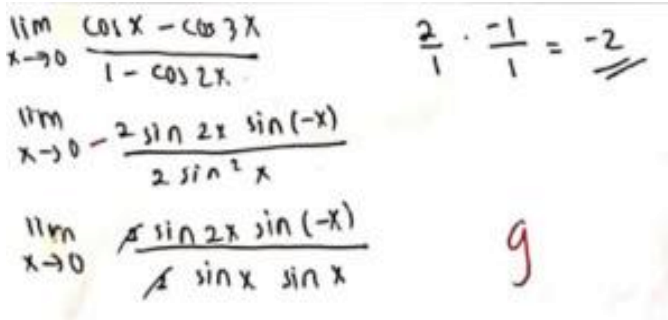 lim x→0 (cos x - cos 3x)/(1 - cos 2x)
lim x→0 - (2 sin 2x sin(-x))/(2 sin² x)
lim x→0 (2 sin 2x sin(-x))/(2 sin x sin x)
2/1 · -1/1 = -2
9